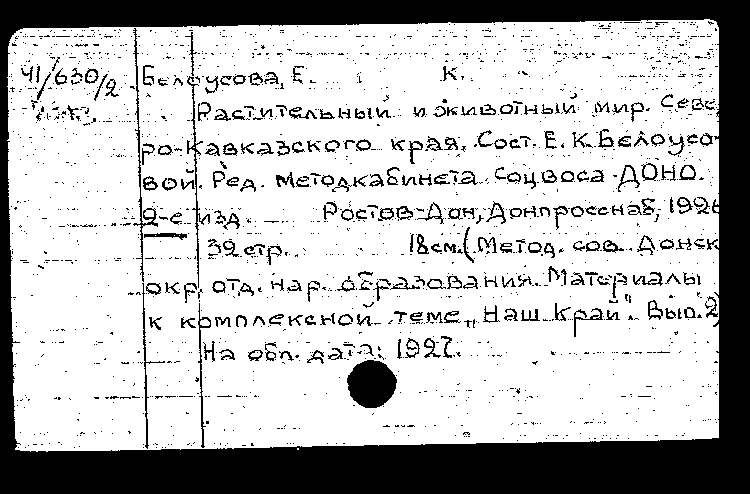 Ч1/630/2 Белоусова, Е. К.
Растительный и животный мир. Севе
ро-Кавказского края. Сост. Е. К. Белоусо-
вой. Ред. Методкабинета Соцвоса ДОНО.
2-е изд. Ростов-Дон, Донпросснаб, 1926
32 стр. 18 см. (Метод. сов. Донск
окр. отд. нар. образования. Материалы
к комплексной теме „Наш край". Вып. 2)
На обл. дата: 1927.